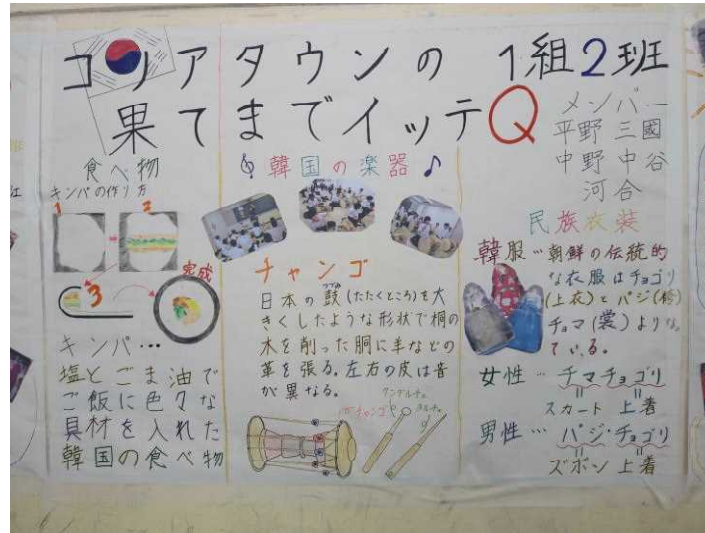 コリアタウンの
果てまでイッテQ
1組2班
メンバー
平野 三國
中野 中谷
河合
食べ物
キンパの作り方
1
2
3
完成
キンパ…
塩とごま油で
ご飯に色々な
具材を入れた
韓国の食べ物
韓国の楽器
チャンゴ
日本の鼓(たたくところ)を大
きくしたような形状で桐の
木を削った胴に羊などの
革を張る。左右の皮は音
が異なる。
チャンゴ
民族衣装
韓服…朝鮮の伝統的
な衣服はチョゴリ
(上衣)とパジ(袴)
チョマ(裳)よりな。
ている。
女性…チマチョゴリ
スカート 上着
男性…パジ・チョゴリ
ズボン 上着